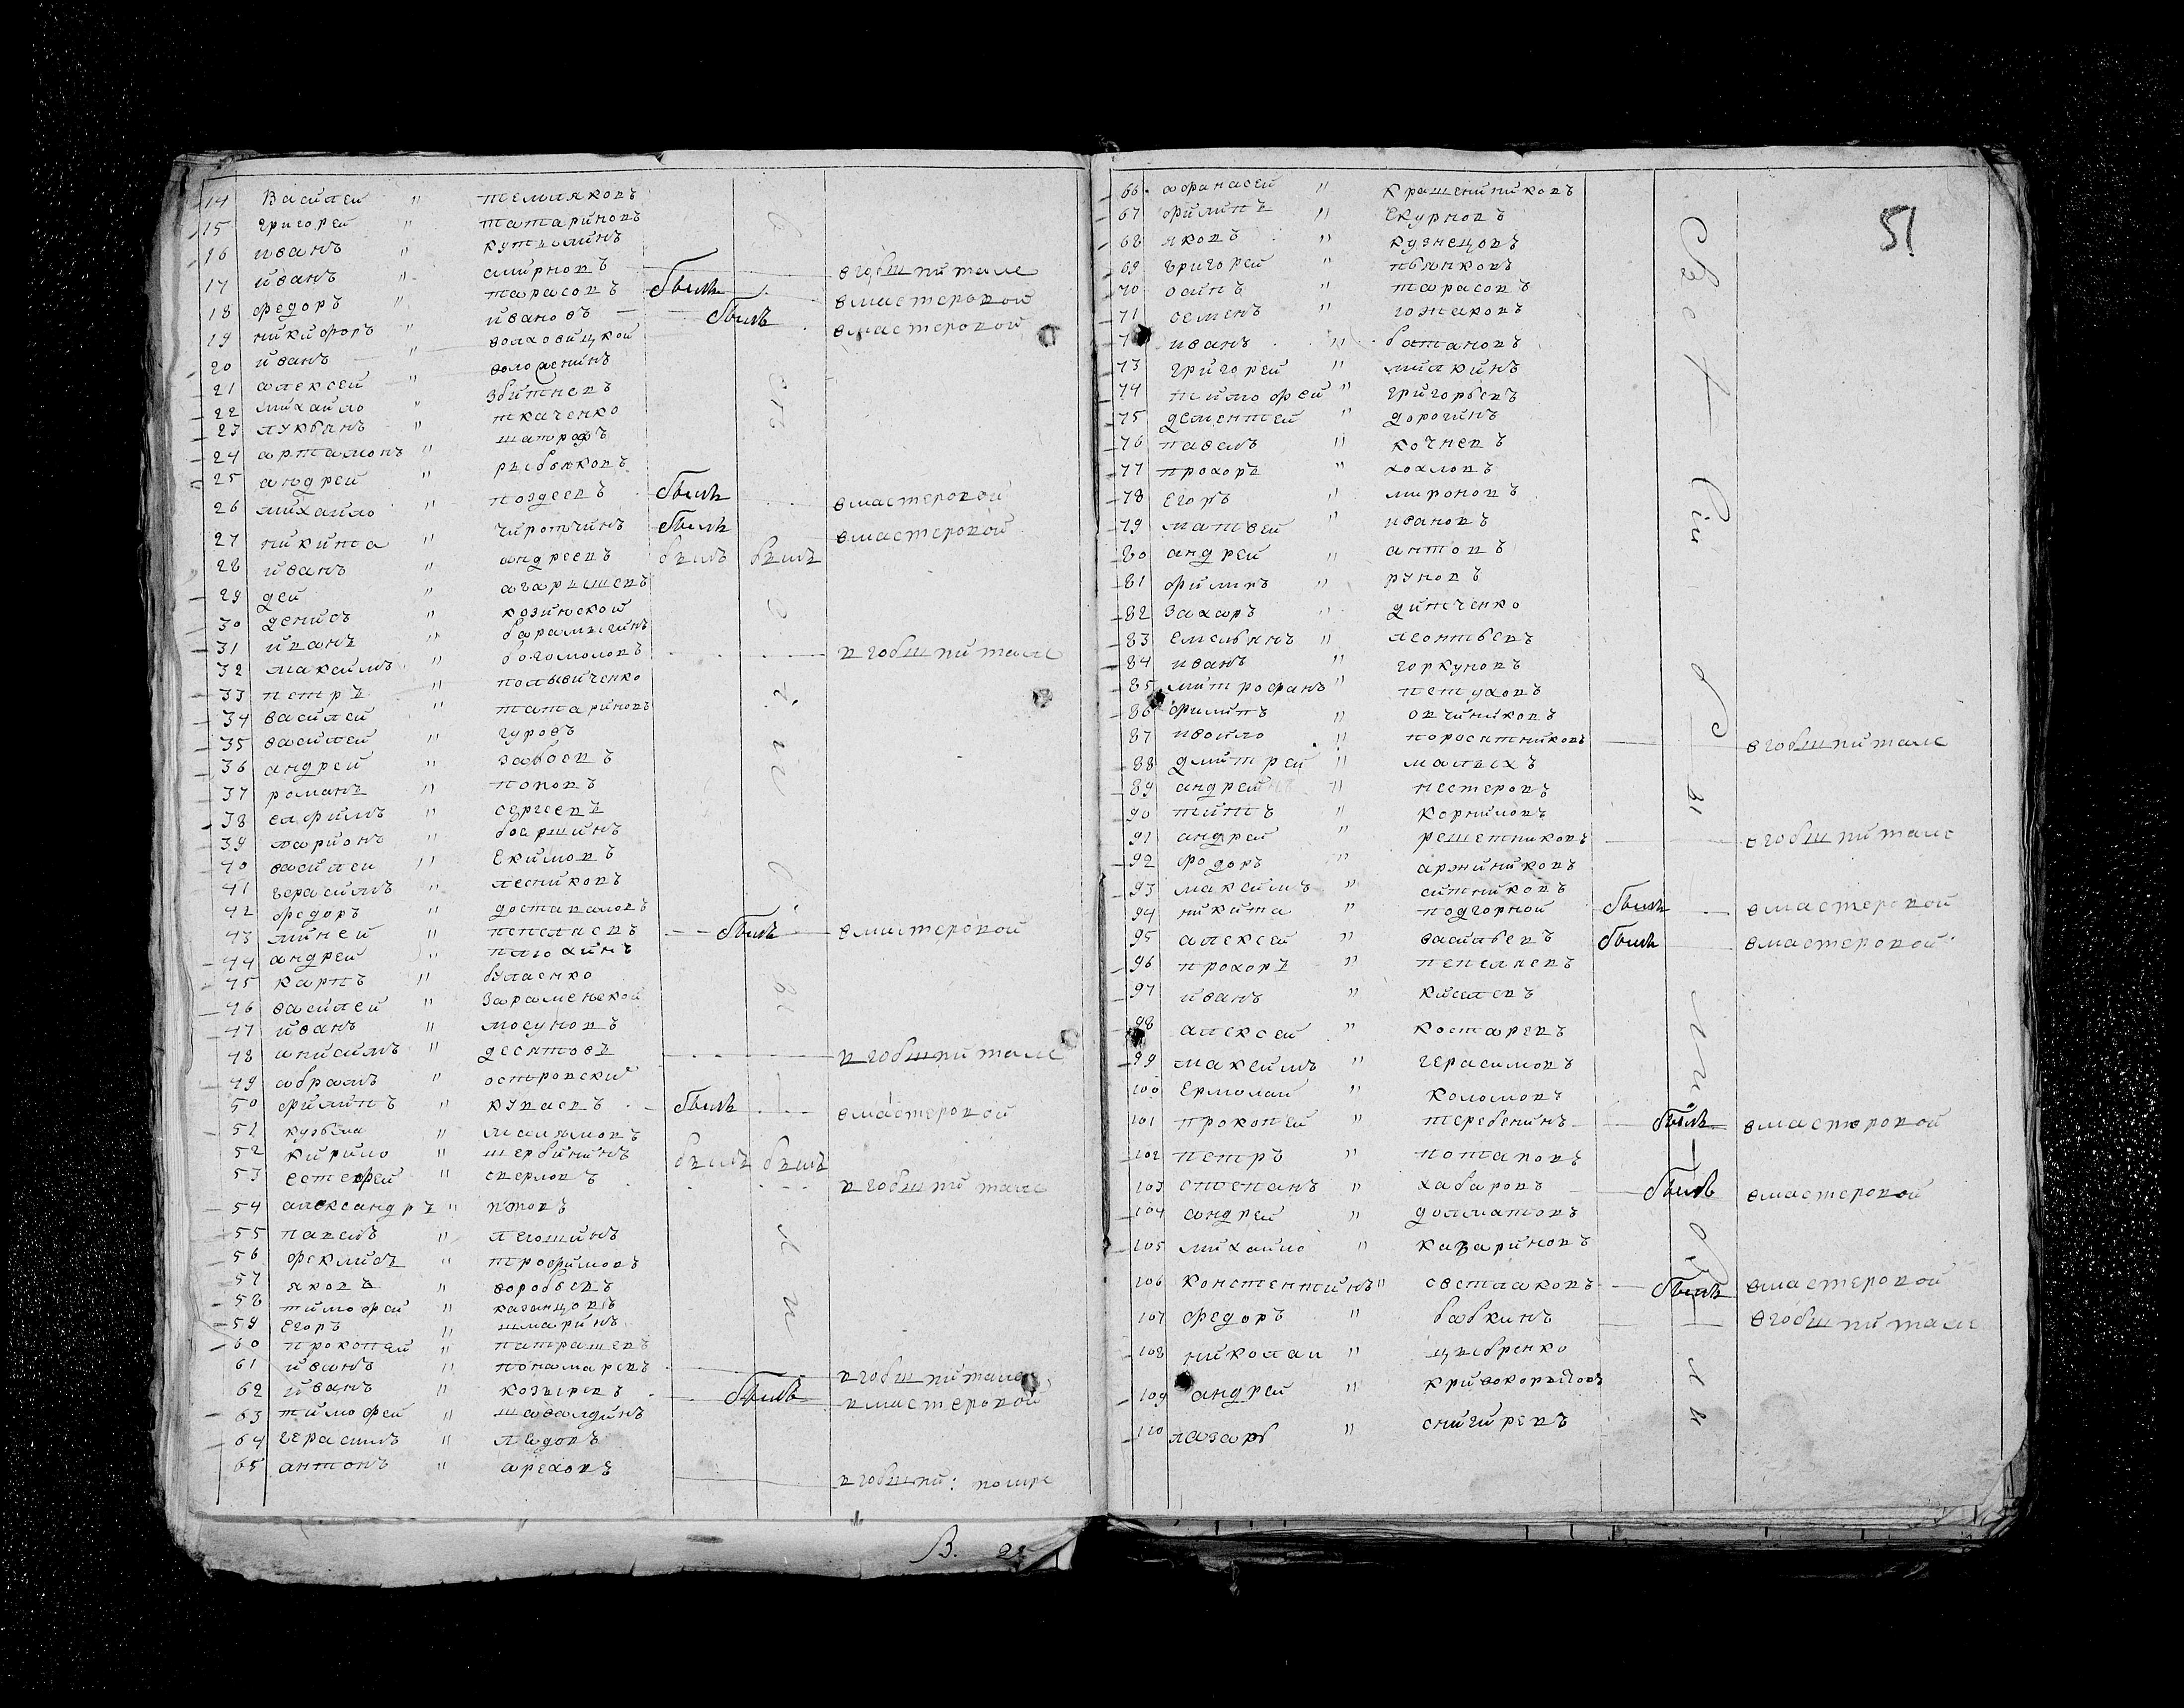 14 Василей " темляковъ
15 григорей " татариновъ
16 иванъ " кутьминъ
17 иванъ " смирновъ вгобшпитале
18 федоръ " тарасовъ былъ вмастеровой
19 никифоръ " ивановъ былъ вмастеровой
20 иванъ " волховицкой
21 алексей " волосенинъ
22 михайло " збитневъ
23 лукьянъ " ткаченко
24 артамонъ " шатровъ
25 андрей " рыбьяковъ
26 михайло " поздеевъ былъ вмастеровой
27 никита " чиротчинъ былъ вмастеровой
28 иванъ " андреевъ былъ былъ
29 дей " агарышевъ
30 денисъ " козинской
31 иванъ " барамыгинъ
32 максимъ " богомоловъ вгобшпитале
33 петръ " полывиченко
34 василей " татариновъ
35 василей " гуровъ
36 андрей " забоевъ
37 романъ " поповъ
38 ефимъ " сергеевъ
39 ларионъ " боершинъ
40 василей " Екимовъ
41 герасимъ " лесниковъ
42 федоръ " доставаловъ
43 миней " пепелаевъ былъ вмастеровой
44 андрей " плюхинъ
45 карпъ " буласнко
46 василей " Зараменской
47 иванъ " мосуновъ
48 анисимъ " десятовъ вгобшпитале
49 абрамъ " островский
50 филипъ " куваевъ былъ вмастеровой
51 кузьма "
52 кирило " щербининъ былъ былъ
53 естефей " сверловъ вгобшпитале
54 александръ " изтовъ
55 павелъ " легошинъ
56 феклисъ " трофимовъ
57 яковъ " воробьевъ
58 тимофей " казанцовъ
59 Егоръ " шмаринъ
60 прокопей " патрашевъ
61 иванъ " понамаревъ вгобшпитале
62 иванъ " козыревъ былъ вмастеровой
63 тимофей " шабалдинъ
64 герасимъ " лядовъ
65 антонъ " ореховъ вгобшпи: помре
В.
51
66 афанасей " Крашениниковъ
67 филипъ " Екурновъ
68 яковъ " кузнецовъ
69 григорей " пьянковъ
70 осипъ " тарасовъ
71 семенъ " гожаковъ
7 иванъ " батановъ
73 григорей " милкинъ
74 тимофей " григорьевъ
75 дементей " дорогинъ
76 павелъ " кочневъ
77 прохоръ " хохловъ
78 Егоръ " мироновъ
79 матвей " ивановъ
80 андрей " антовъ
81 филипъ " руновъ
82 Захаръ " дитченко
83 емельянъ " леонтьевъ
84 иванъ " горкуновъ
85 митрофанъ " петуховъ
86 филипъ " овчиниковъ
87 ивойло " поросятниковъ вгобшпитале
88 дмитрей " малыхъ
89 андрей " нестеровъ
90 титъ " Корниловъ
91 андрей " решетниковъ вгобшпитале
92 федоръ " аржиниковъ
93 максимъ " ситниковъ
94 никита " подгорной былъ вмастеровой
95 алексей " васильевъ былъ вмастеровой
96 прохоръ " пепеляевъ
97 иванъ " киселевъ
98 алексей " костаревъ
99 максимъ " герасимовъ
100 Ермолаи " коломовъ
101 прокопей " теребенинъ былъ вмастеровой
102 петръ " потаповъ
103 степанъ " хабаровъ былъ вмастеровой
104 андрей " долматовъ
105 михайло " казариновъ
106 констентинъ " светлаковъ былъ вмастеровой
107 федоръ " бабкинъ вгобшпитале
108 николаи " цыбренко
109 андрей " кривокорытовъ
110 лазарь " снигиревъ